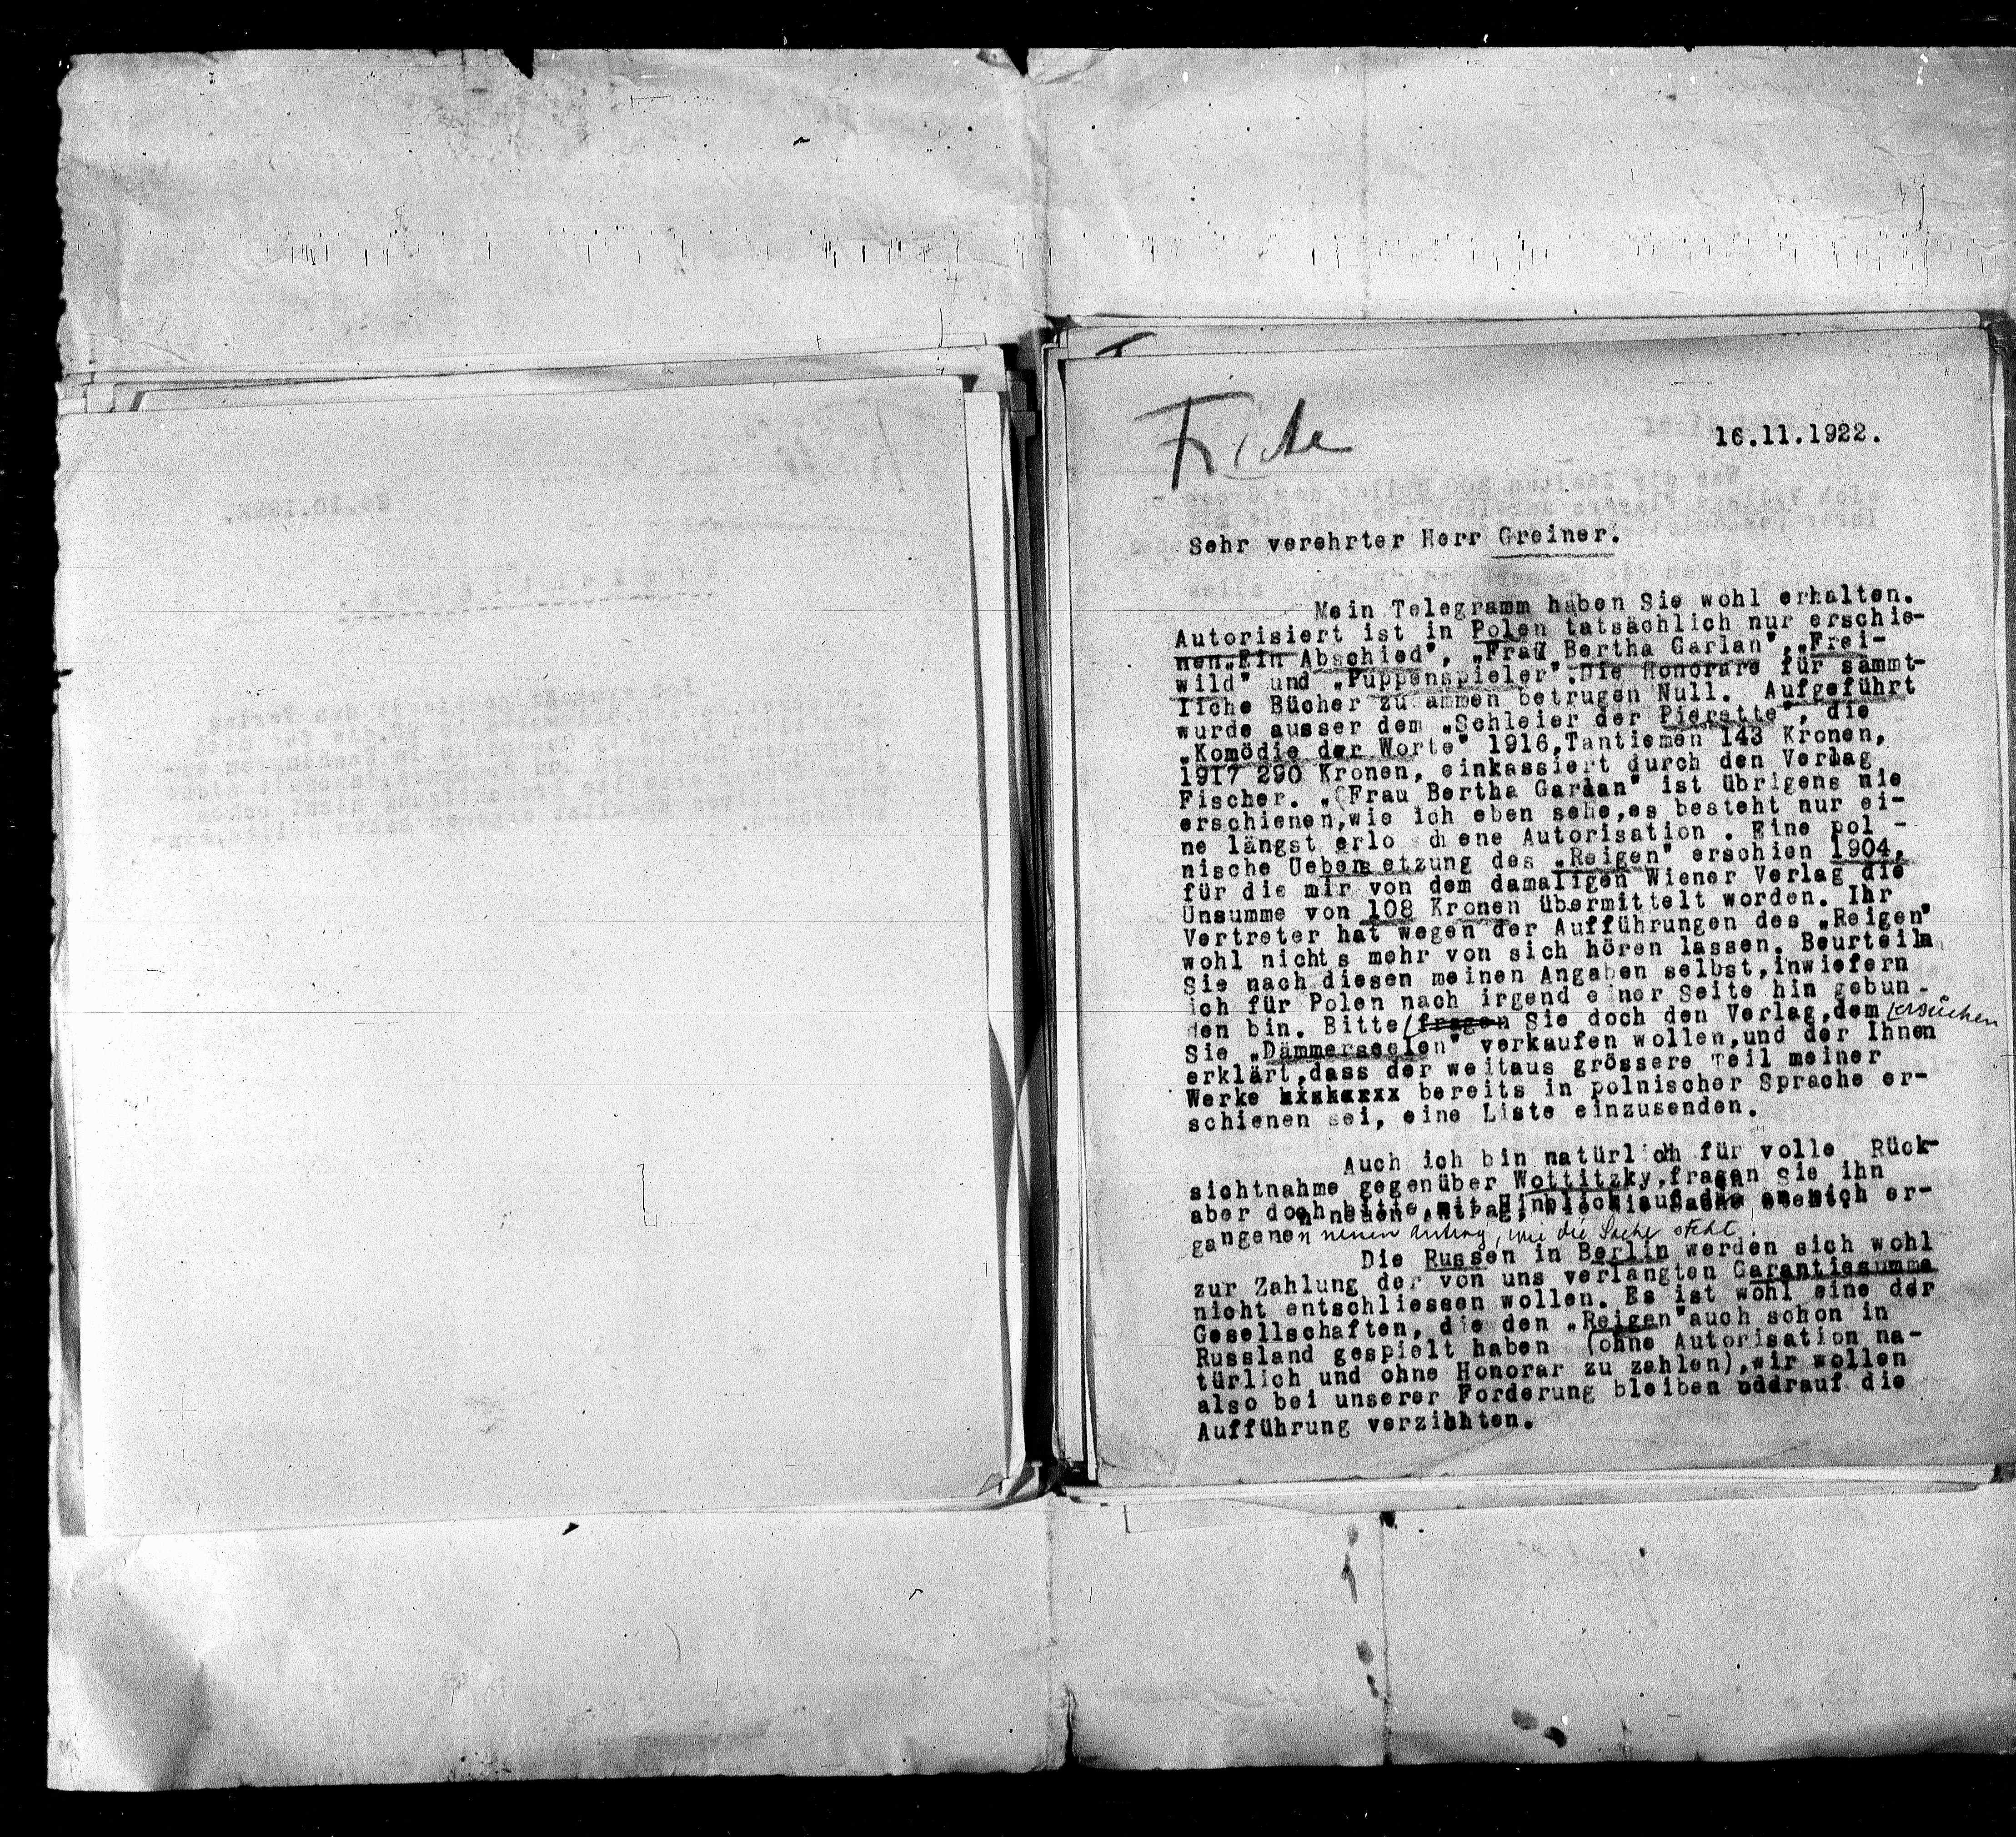 16.11.1922.
Sehr verehrter Herr Greiner.
Mein Telegramm haben Sie wohl erhalten.
Autorisiert ist in Polen tatsächlich nur erschie-
nen„Ein Abschied", „Frau Bertha Garlan",„Frei-
wild" und „Puppenspieler".Die Honorare für sämmt-
liche Bücher zusammen betrugen Null. Aufgeführt
wurde ausser dem „Schleier der Pierette", die
„Komödie der Worte" 1916,Tantiemen 143 Kronen,
1917 290 Kronen, einkassiert durch den Verlag
Fischer. „Frau Bertha Garlan" ist übrigens nie
erschienen,wie ich eben sehe,es besteht nur ei-
ne längst erloschene Autorisation . Eine pol -
nische Uebersetzung des „Reigen" erschien 1904,
für die mir von dem damaligen Wiener Verlag die
Unsumme von 108 Kronen übermittelt worden. Ihr
Vertreter hat wegen der Aufführungen des „Reigen"
wohl nichts mehr von sich hören lassen. Beurteiln
Sie nach diesen meinen Angaben selbst,inwiefern
ich für Polen nach irgend einer Seite hin gebun-
den bin. Bitte fragen Sie doch den Verlag,dem ersuchen
Sie „Dämmerseelen" verkaufen wollen,und der Ihnen
erklärt,dass der weitaus grössere Teil meiner
Werke bereits in polnischer Sprache er-
schienen sei, eine Liste einzusenden.
Auch ich bin natürlich für volle Rück-
sichtnahme gegenüber Wottitzky,fragen Sie ihn
aber doch bitte,mit Hinblick auf die an mich er-
gangenen neuen Antrag, wie die Sache steht.
Die Russen in Berlin werden sich wohl
zur Zahlung der von uns verlangten Garantiesumme
nicht entschliessen wollen. Es ist wohl eine der
Gesellschaften, die den „Reigen"auch schon in
Russland gespielt haben (ohne Autorisation na-
türlich und ohne Honorar zu zahlen),wir wollen
also bei unserer Forderung bleiben oddrauf die
Aufführung verzichten.